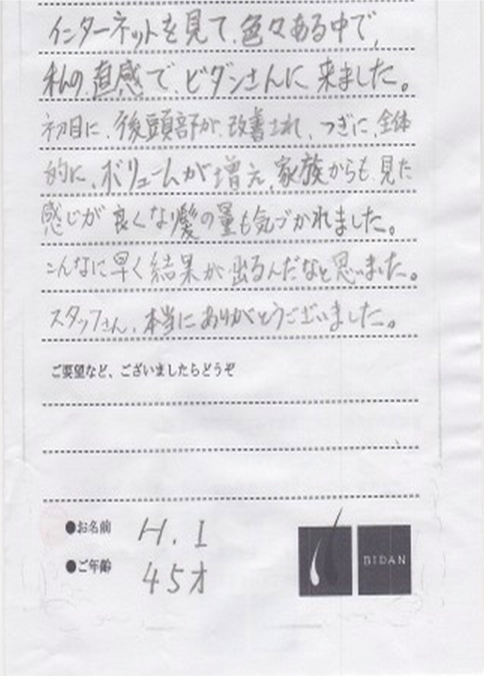 インターネットを見て、色々ある中で、
私の直感で、ビダンさんに来ました。
初目に、後頭部が改善され、つぎに、全体
的に、ボリュームが増え、家族からも見た
感じが良くなり髪の量も気づかれました。
こんなに早く結果が出るんだなと思いました。
スタッフさん、本当にありがとうございました。
ご要望など、ございましたらどうぞ
●お名前 H.I
●ご年齢 45才
BIDAN